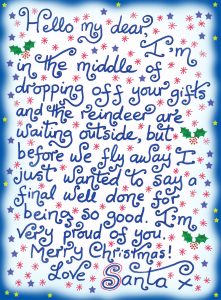 Hello my dear,
I'm
in the middle of
dropping off your gifts
and the reindeer are
waiting outside, but
before we fly away I
just wanted to say a
final well done for
being so good. I'm
very proud of you.
Merry Christmas!
Love Santa x